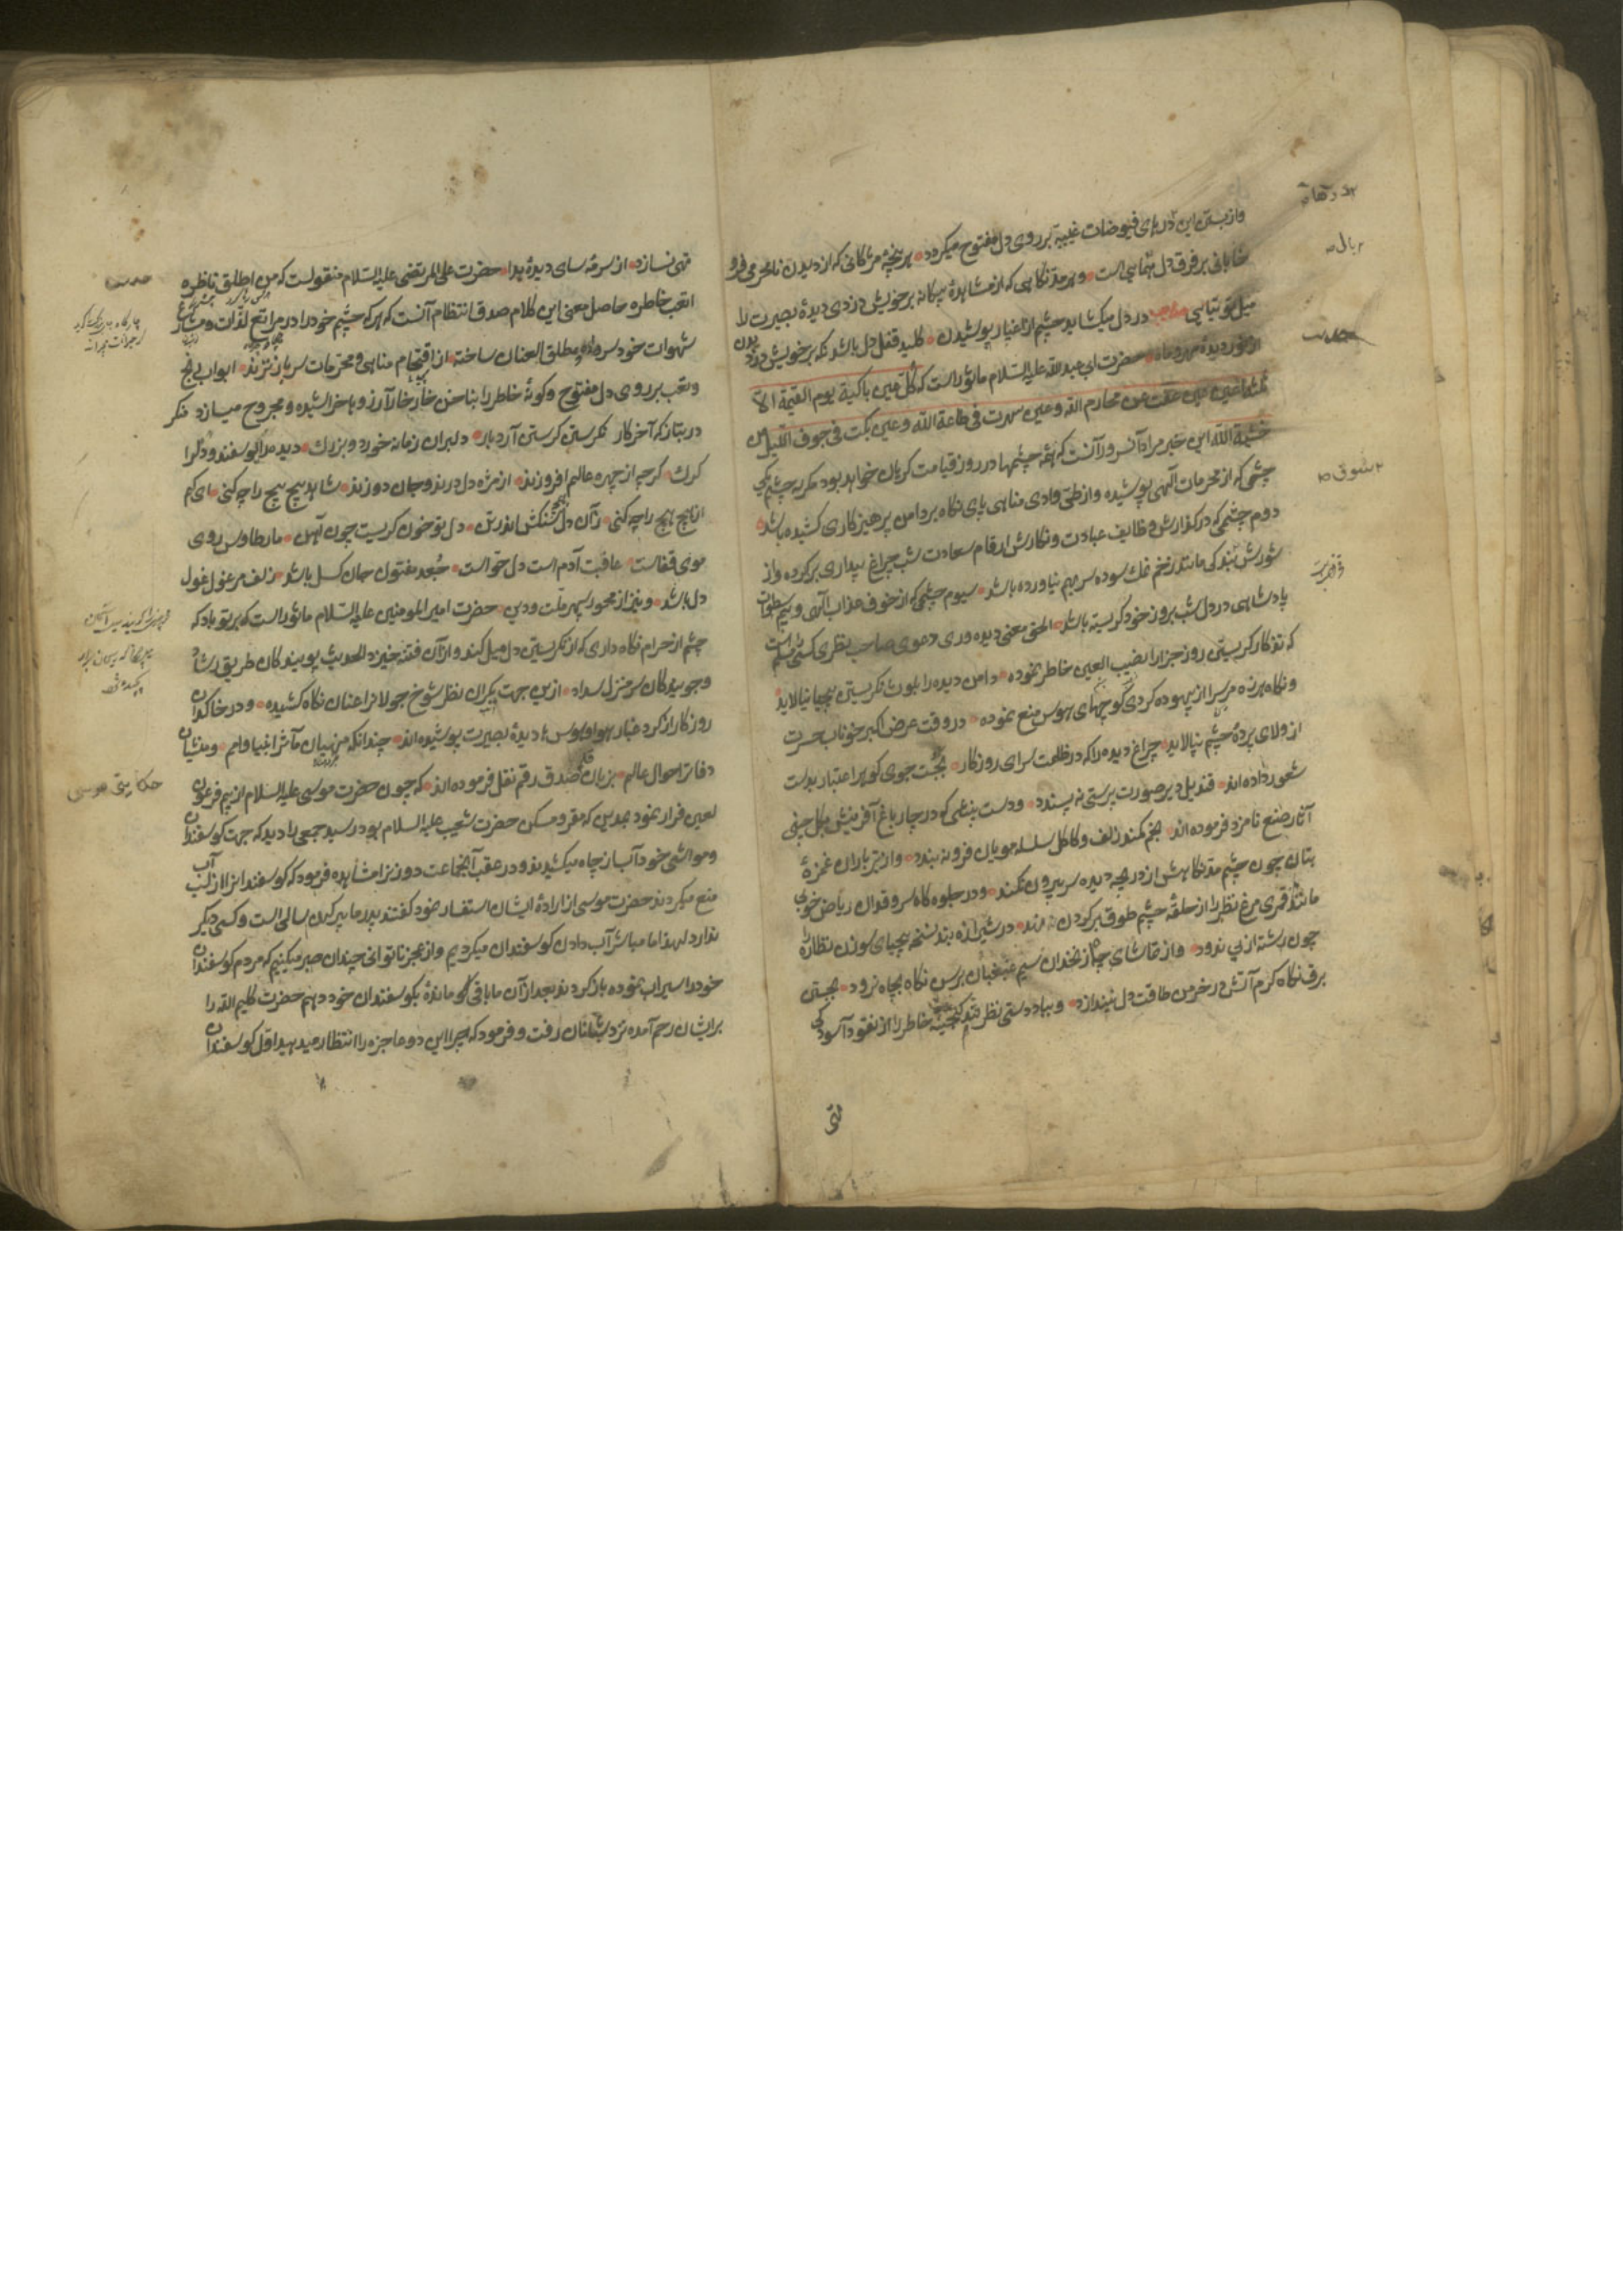 وازبستن این درهای فیوضات غیبیه بر روی دل مفتوح میکردد هر پنجه مژکانی که از دیدن نامحرمی فرو
خابانی بر فرق دل تهماسی است و هر مد نکاهی که از مشاهدهٔ بیکانه بر خویش دزدی دیدهٔ بصیرت را
میل توتیایی در دل میکشاید چشم از اغیار پوشیدن کلید قفل دل باشد نکه بر خویش دزدیدن
از نور دیدهٔ مهر و ماه حضرت ابی عبد الله علیه السلام ماثور است که کل عین باکیة یوم القیمة الا
ثلثة اعین عین غضت عن محارم الله و عین سهرت فی طاعة الله و عین بکت فی جوف اللیل من
خشیة الله این خبر مراد آنسرور آنست که همه چشمها در روز قیامت کریان خواهد بود مکر سه چشم یکی
چشمی که از محرمات آلهی پوشیده و از طی وادی مناهی پای نکاه بر دامن پرهیزکاری کشیده باشد
دوم چشمی که در کذارش وظایف عبادت و نکارش ارقام سعادت شب چراغ بیداری بر کرده و از
شورش بندکی مانند زخم نمک سوده سر بهم نیاورده باشد سیوم چشمی که از خوف عذاب آلهی و بیم سطوات
پادشاهی در دل شب بروز خود کریسته باشد الحق معنی دیده وری و دعوی صاحب نظری کسی را مسلم است
که تذکار کریستن روز جزا را نصب العین خاطر نموده دامن دیده را بلوث نکریستن بیجا نیالاید
و نکاه هرزه مرس را از بیهوده کردی کوچهای هوس منع نموده در وقت عرض اکبر خوناب حسرت
از ولای پردهٔ چشم نپالاید چراغ دیده را که در ظلمت سرای روزکار بجست جوی کوهر اعتبار بدست
شعور داده اند قندیل دیر صورت پرستی نه پسندد و دست بینشی که در چار باغ آفرینش بکل چینی
آثار صنع نامزد فرموده اند بخم کمند زلف و کاکل سلسله مویان فرو نه بندد و از تیر باران غمزهٔ
بتان چون چشم مد نکاهش از دریچه دیده سر بیرون نکند و در جلوه کاه سرو قدان ریاض خوبی
مانند قمری مرغ نظر را از حلقهٔ چشم طوق بر کردن نهد در شیرازه بند نسخه بیچیای سوزن نظاره را
چون رشته از پی ندود و از تماشای چاه زنخدان سیم غبغبان برسن نکاه بچاه نرود بجستن
برق نکاه کرم آتش در خرمن طاقت دل نیندازد و بباد دستی نظر تند کنجینهٔ خاطر را از نقود آسودکی
تهی
تهی نسازد از سرمه سای دیدهٔ پیدا حضرت علی المرتضی علیه السلام منقولست که من اطلق ناظره
اتعب خاطره حاصل معنی این کلام صدق انتظام آنست که هر که چشم خود را در مراتع لذات و مشارع
شهوات خود سر داده و مطلق العنان ساخته از اقتحام مناهی و محرمات سر باز نزند ابواب رنج
و تعب بر روی دل مفتوح و کونهٔ خاطر را بناخن خار خار آرزوها خراشیده و مجروح میسازد منکر
در بتان که آخر کار نکرستن کرستن آرد بار دلبران زمانه خورد و بزرک دیده را کوسفند و دل را
کرک کرچه از چهره عالم افروزند از مژه دل درند و جان دوزند شاهد پیچ پیچ را چکنی ای کم
از هیچ هیچ را چکنی زآن دل سنکش اندر تن دل تو خون کریست چون آهن مار طاوس روی
موی قفاست عاقبت آدم است دل خواست جعد مفتول جان کسل باشد زلف مرغول غول
دل باشد و نیز از محور سپهر ملت و دین حضرت امیر المومنین علیه السلام ماثور است که بر تو باد که
چشم از حرام نکاه داری که از نکریستن دل میل کند و از آن فتنه خیزد الحدیث پویندکان طریق رشاد
و جویندکان سر منزل سداد ازین جهت یکران نظر شوخ جولان را عنان نکاه کشیده و در خاکدان
روزکار از کرد غبار هوا و هوس دیدهٔ بصیرت پوشیده اند چنانکه منهیان مآثر انبیا و امم و منشیان
دفاتر احوال عالم بزبان صدق رقم نقل فرموده اند که چون حضرت موسی علیه السلام از بیم فرعون
لعین فرار نموده بمدین که مقر و مسکن حضرت شعیب علیه السلام بود رسید جمعی را دید که جهت کوسفندان
و مواشی خود آب از چاه میکشیدند و در عقب آنجماعت دو زن را مشاهده فرمود که کوسفندانرا از لب آب
منع میکردند حضرت موسی از ارادهٔ ایشان استفسار نمود کفتند پدر ما پیر کهن سالی است و کسی دیکر
ندارد لهذا ما مباشر آب دادن کوسفندان میکردیم و از عجز ناتوانی چندان صبر میکنیم که مردم کوسفندان
خود را سیراب نموده باز کردند بعد از آن ما باقی ماندهٔ بکوسفندان خود دهیم حضرت کلیم الله را
بر ایشان رحم آمده نزد شبانان رفت و فرمود که چرا این دو عاجزه را انتظار میدهید اول کوسفندان
حدیث
حکایتی موسی